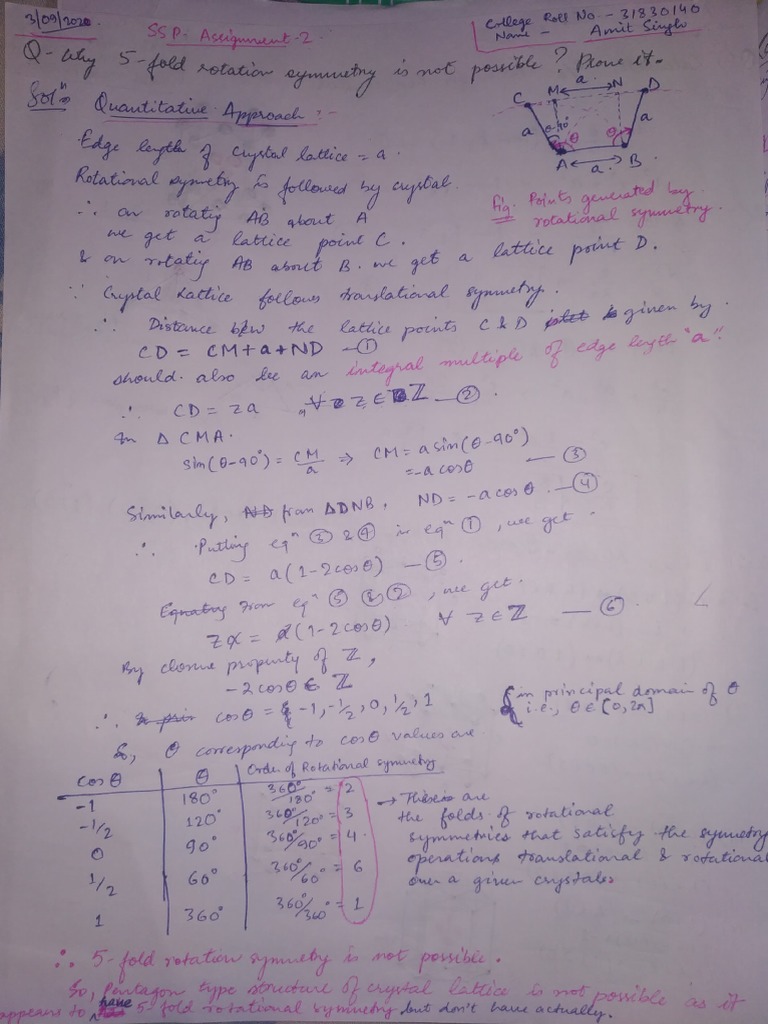 3/09/2020
SSP- Assignment-2
College Roll No - 31830140
Name - Amit Singh
Q- Why 5-fold rotation symmetry is not possible? Prove it.
Solⁿ: Quantitative Approach :-
C M a N D
a θ-90° θ θ a
A a B
Fig. Points generated by
rotational symmetry.
Edge length of crystal lattice = a.
Rotational symmetry is followed by crystal.
∴ on rotatig AB about A
we get a lattice point C.
& on rotatig AB about B. we get a lattice point D.
∵ Crystal Lattice follows translational symmetry.
∴ Distance b/w the lattice points C & D is given by
CD = CM+a+ND —①
should also be an integral multiple of edge length "a".
∴ CD = za , ∀ z ∈ ℤ —②.
In Δ CMA.
sin(θ-90°) = CM/a ⇒ CM = a sin(θ-90°)
= -a cosθ —③
Similarly, from ΔDNB, ND = -a cosθ. —④
∴ Putting eqⁿ ③ & ④ in eqⁿ ①, we get
CD = a(1-2cosθ) —⑤.
From eqⁿ ⑤ & ②, we get.
za = a(1-2cosθ) ∀ z∈ℤ —⑥.
By closure property of ℤ,
-2cosθ ∈ ℤ
∴ cosθ = -1, -1/2, 0, 1/2, 1
{in principal domain of θ
i.e., θ∈[0,2π]
So, θ corresponding to cosθ values are
cosθ | θ | Order of Rotational symmetry
-1 | 180° | 360°/180° = 2
-1/2 | 120° | 360°/120° = 3
0 | 90° | 360°/90° = 4
1/2 | 60° | 360°/60° = 6
1 | 360° | 360°/360° = 1
→ These are
the folds of rotational
symmetries that satisfy the symmetry
operations translational & rotational
over a given crystals.
∴ 5-fold rotation symmetry is not possible.
So, Pentagon type structure of crystal lattice is not possible as it
appears to have 5-fold rotational symmetry but don't have actually.